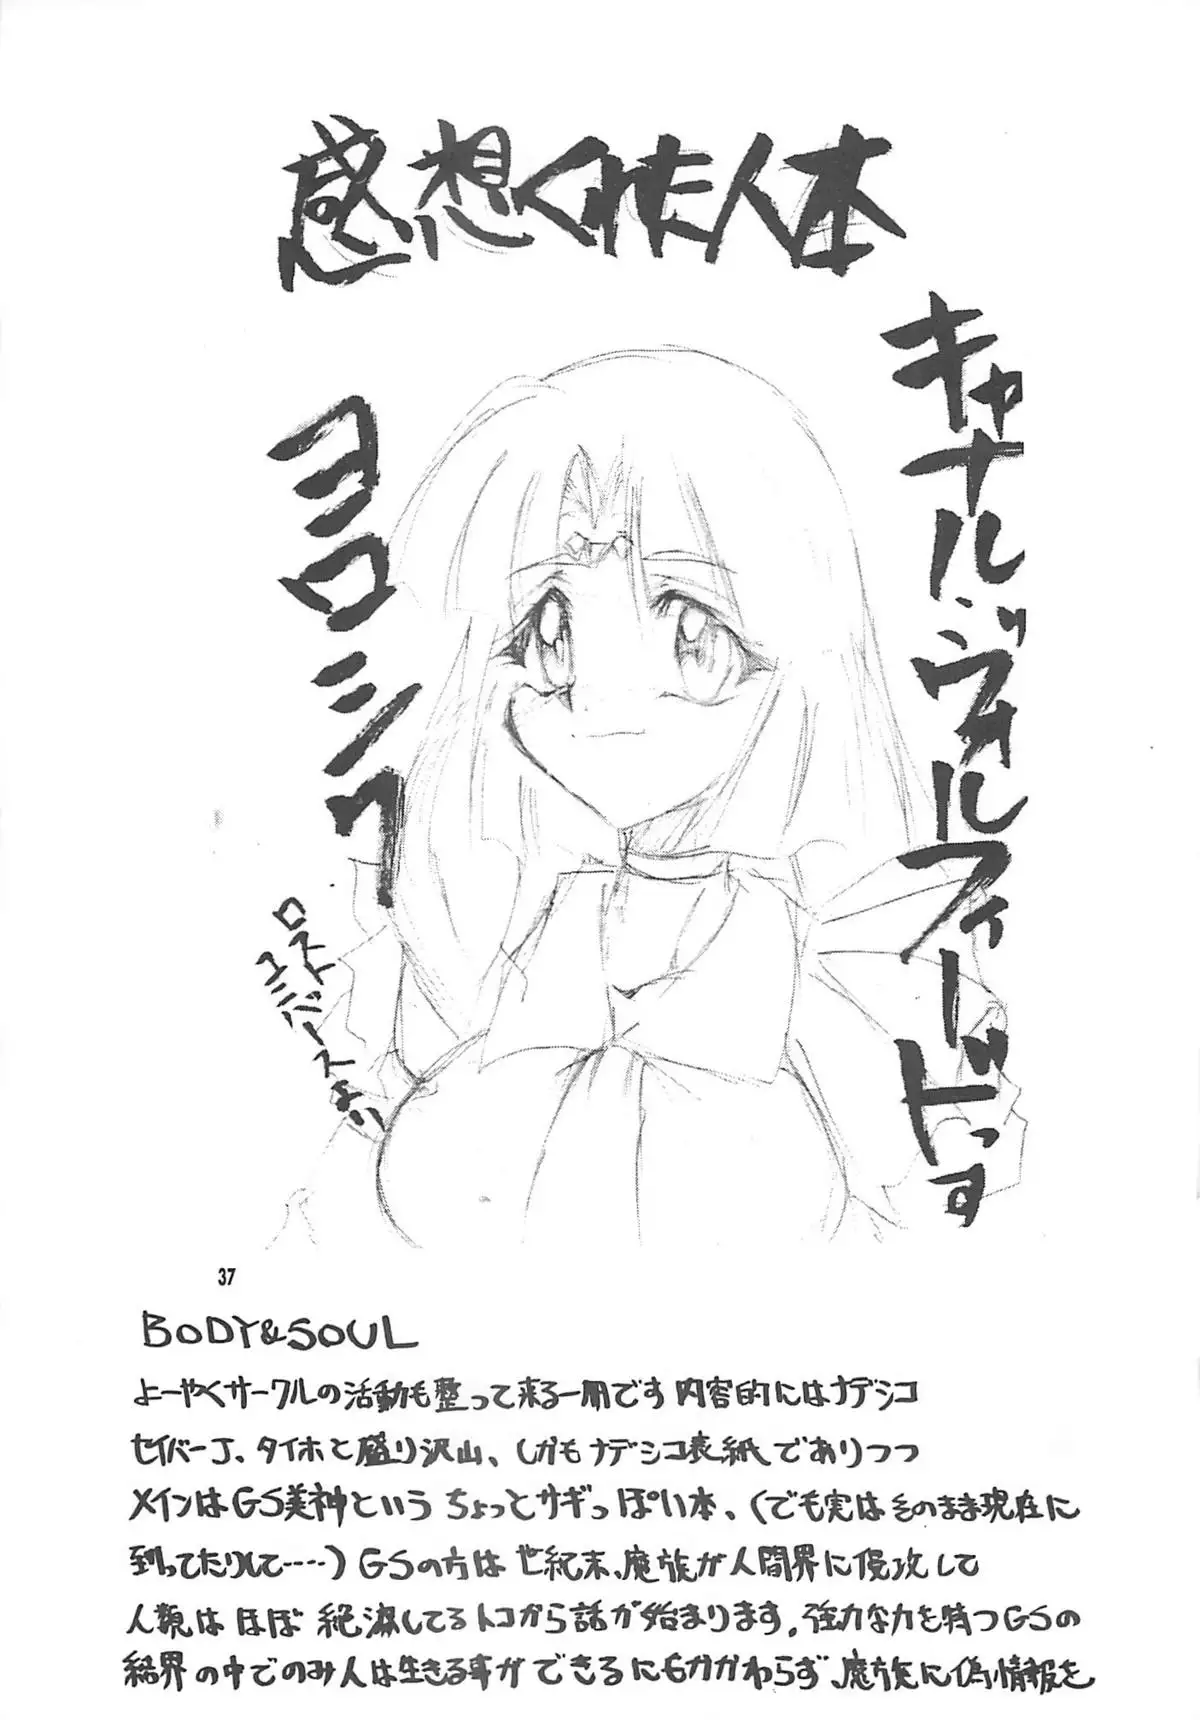 感想くれた人本
キャナル・ヴォルフィードっす
ヨロシク
ロスト
ユニバースより
37
BODY&SOUL
よーやくサークルの活動も整って来る一冊です 内容的にはナデシコ
セイバーJ、タイホと盛り沢山、しかもナデシコ表紙でありつつ
メインはGS美神という ちょっとサギっぽい本、(でも実はそのまま現在に
到ってたりして‥‥‥)GSの方は 世紀末、魔族が人間界に侵攻して
人類は ほぼ 絶滅してるトコから話が始まります。強力な力を持つGSの
結界の中でのみ人は生きる事ができるにもかかわらず、魔族に偽情報を